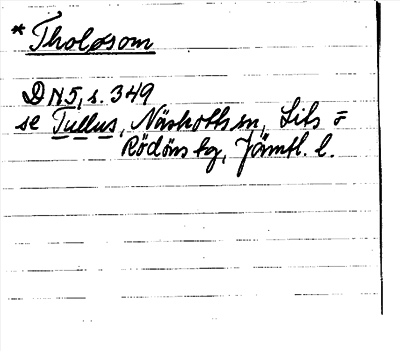 * Tholosom
DN5, s. 349
se Tullus, Näskotts sn, Lits o
Rödöns tg, Jämtl. l.